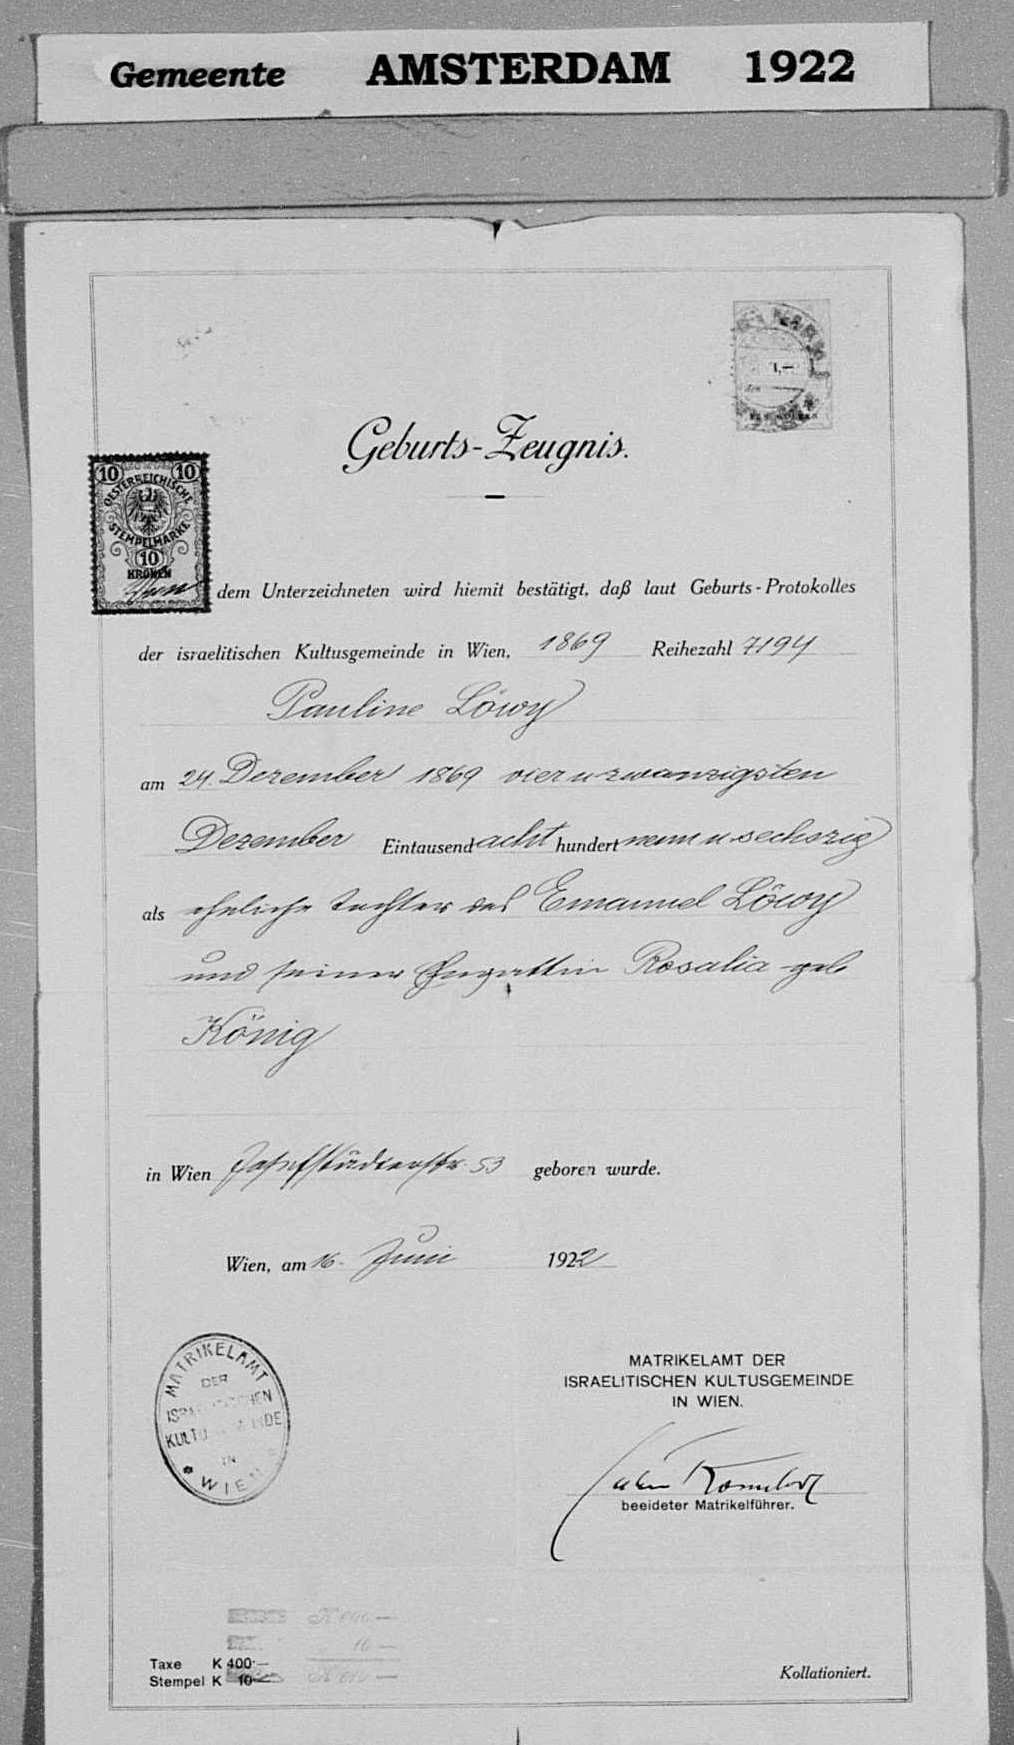 Gemeente AMSTERDAM 1922
1,—
Geburts-Zeugnis.
10 10
OESTERREICHISCHE
STEMPELMARKE
10
KRONEN
dem Unterzeichneten wird hiemit bestätigt, daß laut Geburts-Protokolles
der israelitischen Kultusgemeinde in Wien, 1869 Reihezahl 7194
Pauline Löwy
am 24. Dezember 1869 vier u zwanzigsten
Dezember Eintausend acht hundert neun u sechszig
als eheliche Tochter des Emanuel Löwy
und seiner Ehegattin Rosalia geb
König
in Wien Josefstädterstr. 53 geboren wurde.
Wien, am 16. Juni 1922
MATRIKELAMT
DER
ISRAELITISCHEN
KULTUSGEMEINDE
IN
* WIEN *
MATRIKELAMT DER
ISRAELITISCHEN KULTUSGEMEINDE
IN WIEN.
beeideter Matrikelführer.
K 600—
10—
K 610—
Taxe K 400·—
Stempel K 10—
Kollationiert.